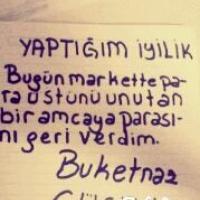 YAPTIĞIM İYİLİK
Bugün markette pa-
ra üstünü unutan
bir amcaya parası-
nı geri verdim.
Buketnaz